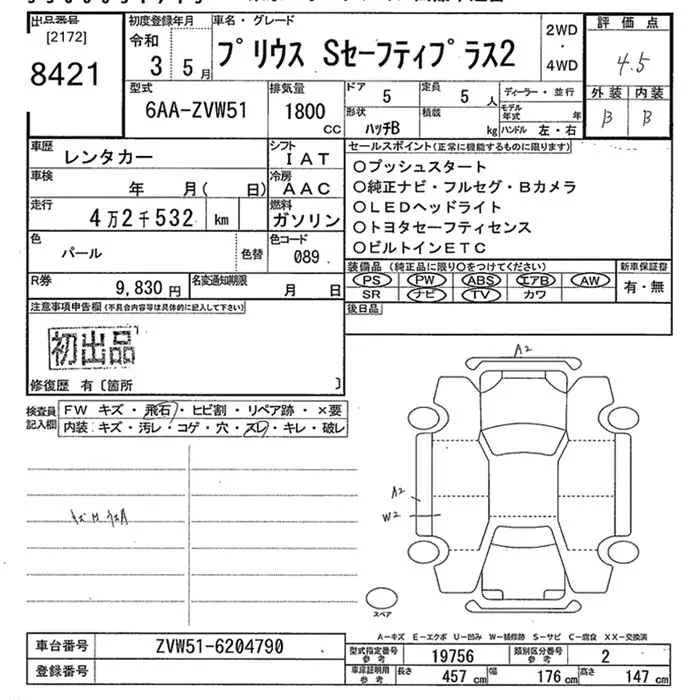 出品番号
[2172]
8421
初度登録年月
令和
3 5月
車名・グレード
プリウス Sセーフティプラス2
2WD
・
4WD
評価点
4.5
外装 内装
B B
型式
6AA-ZVW51
排気量
1800
CC
ドア
5
定員
5 人
ディーラー・並行
形状
ハッチB
積載
kg
モデル年式 年
ハンドル 左・右
車歴
レンタカー
シフト
IAT
車検
年 月( 日)
冷房
AAC
走行
4万2千532 km
燃料
ガソリン
色
パール
色替
色コード
089
R券
9,830円
名変通知期限
月 日
セールスポイント(正常に機能するものに限ります)
○プッシュスタート
○純正ナビ・フルセグ・Bカメラ
○LEDヘッドライト
○トヨタセーフティセンス
○ビルトインETC
装備品 (純正品に限り○をつけてください)
新車保証書
PS PW ABS エアB AW
SR ナビ TV カワ
有・無
後日品
注意事項申告欄(不具合内容等は具体的に記入して下さい)
初出品
修復歴 有〔箇所 〕
検査員記入欄
FW キズ・飛石・ヒビ割・リペア跡・×要
内装:キズ・汚レ・コゲ・穴・スレ・キレ・破レ
A2
A2
W2
スペア
A-キズ E-エクボ U-凹み W-補修跡 S-サビ C-腐食 XX-交換済
車台番号
ZVW51-6204790
登録番号
型式指定番号
参考
19756
類別区分番号
参考
2
車庫証明用
参考
長さ
457 cm
幅
176 cm
高さ
147 cm